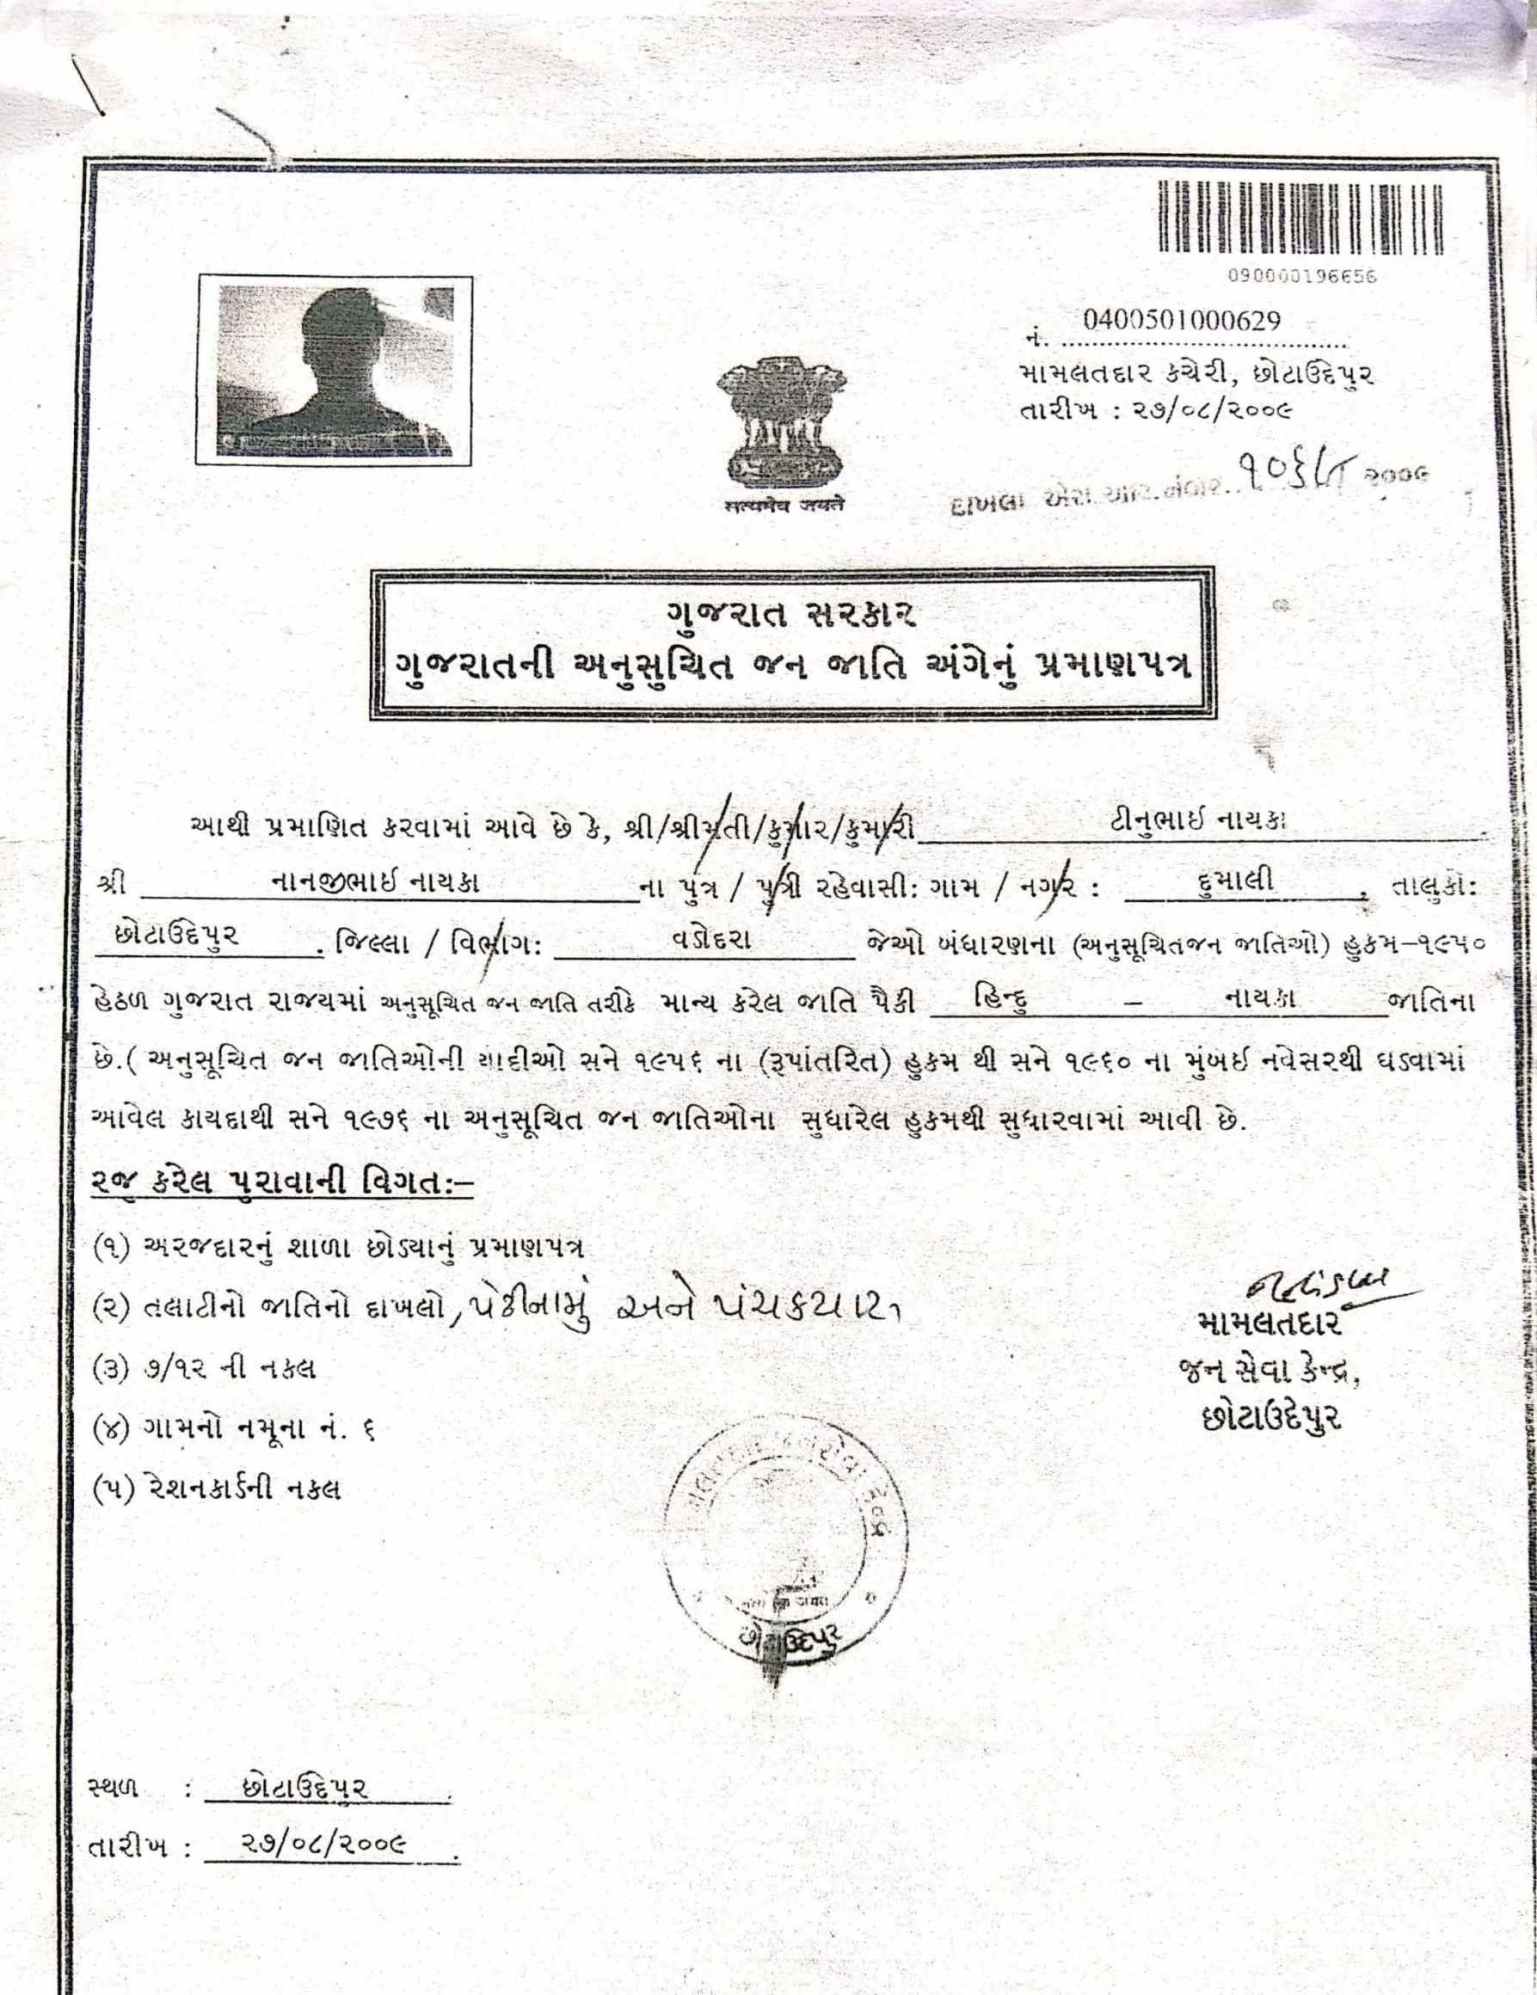 090000196656
નં. 0400501000629
મામલતદાર કચેરી, છોટાઉદેપુર
તારીખ : ૨૭/૦૮/૨૦૦૯
सत्यमेव जयते
દાખલા એસ.આર.નંબર.. ૨૦૦૯
ગુજરાત સરકાર
ગુજરાતની અનુસુચિત જન જાતિ અંગેનું પ્રમાણપત્ર
આથી પ્રમાણિત કરવામાં આવે છે કે, શ્રી/શ્રીમતી/કુમાર/કુમારી ટીનુભાઈ નાયકા
શ્રી નાનજીભાઈ નાયકા ના પુત્ર / પુત્રી રહેવાસી: ગામ / નગર : દુમાલી , તાલુકો:
છોટાઉદેપુર . જિલ્લા / વિભાગ: વડોદરા જેઓ બંધારણના (અનુસૂચિતજન જાતિઓ) હુકમ–૧૯૫૦
હેઠળ ગુજરાત રાજયમાં અનુસૂચિત જન જાતિ તરીકે માન્ય કરેલ જાતિ પૈકી હિન્દુ – નાયકા જાતિના
છે.( અનુસૂચિત જન જાતિઓની યાદીઓ સને ૧૯૫૬ ના (રૂપાંતરિત) હુકમ થી સને ૧૯૬૦ ના મુંબઈ નવેસરથી ઘડવામાં
આવેલ કાયદાથી સને ૧૯૭૬ ના અનુસૂચિત જન જાતિઓના સુધારેલ હુકમથી સુધારવામાં આવી છે.
રજુ કરેલ પુરાવાની વિગત:–
(૧) અરજદારનું શાળા છોડ્યાનું પ્રમાણપત્ર
(૨) તલાટીનો જાતિનો દાખલો, પેઢીનામું અને પંચકયાસ
(૩) ૭/૧૨ ની નકલ
(૪) ગામનો નમૂના નં. ૬
(૫) રેશનકાર્ડની નકલ
મામલતદાર
જન સેવા કેન્દ્ર,
છોટાઉદેપુર
છોટાઉદેપુર
સ્થળ : છોટાઉદેપુર .
તારીખ : ૨૭/૦૮/૨૦૦૯ .